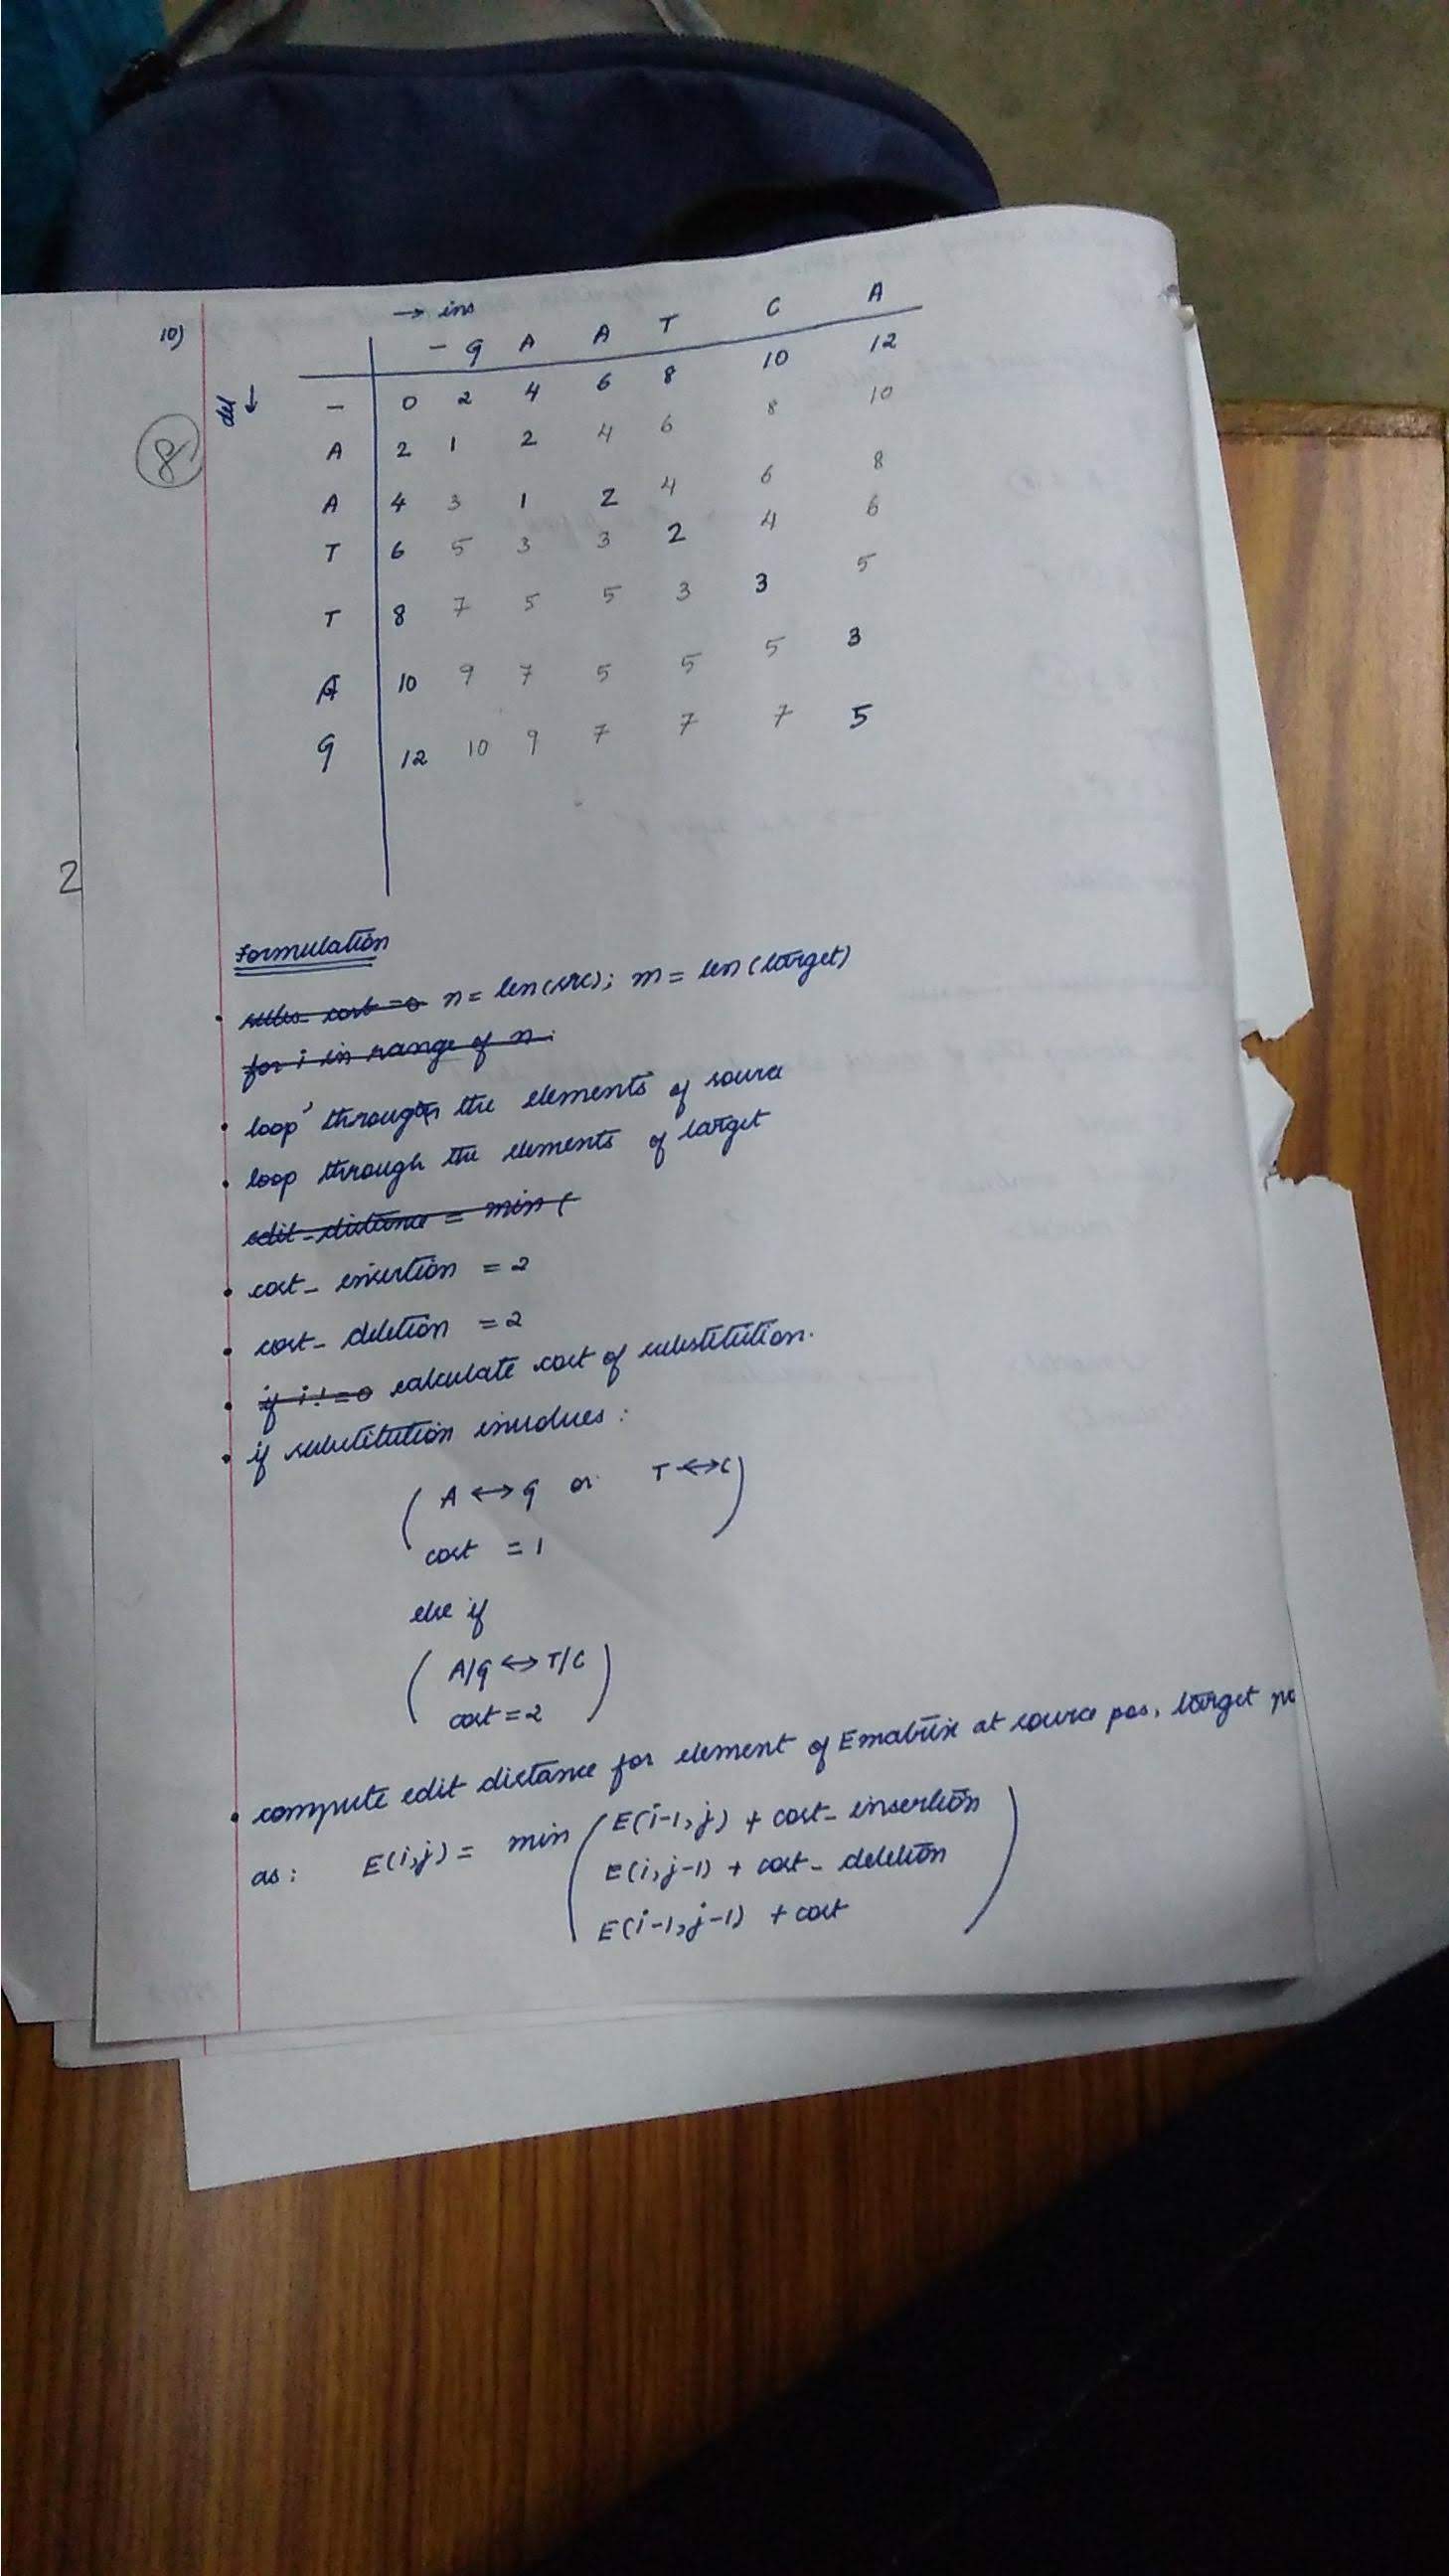 10)
→ ins
- G A A T C A
del ↓
- 0 2 4 6 8 10 12
A 2 1 2 4 6 8 10
8
A 4 3 1 2 4 6 8
T 6 5 3 3 2 4 6
T 8 7 5 5 3 3 5
A 10 9 7 5 5 5 3
G 12 10 9 7 7 7 5
2
Formulation
• subs_cost = 0 n = len(src); m = len(target)
for i in range of n:
• loop through the elements of source
• loop through the elements of target
edit_distance = min (
• cost_ insertion = 2
• cost_ deletion = 2
• if i != 0 calculate cost of substitution.
• if substitution involves:
( A ↔ G or T ↔ C )
cost = 1
else if
( A/G ↔ T/C )
cost = 2
• compute edit distance for element of Ematrix at source pos, target po
as: E(i,j) = min ( E(i-1,j) + cost_ insertion
E(i,j-1) + cost_ deletion
E(i-1,j-1) + cost )